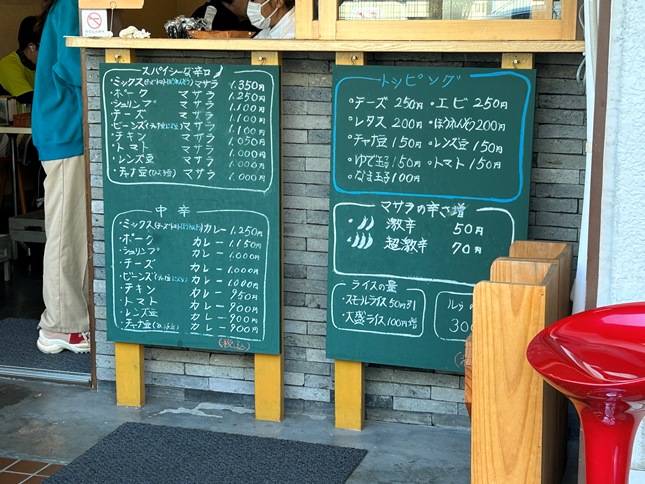 スパイシーな辛口
・ミックス(チーズ・トマト・ほうれんそう)マサラ 1,350円
・ポーク マサラ 1,250円
・シュリンプ マサラ 1,100円
・チーズ マサラ 1,100円
・ビーンズ マサラ 1,100円
・チキン マサラ 1,050円
・トマト マサラ 1,000円
・レンズ豆 マサラ 1,000円
・チャナ豆(ひよこ豆) マサラ 1,000円
中辛
・ミックス(チーズ・トマト・ほうれんそう)カレー 1,250円
・ポーク カレー 1,150円
・シュリンプ カレー 1,000円
・チーズ カレー 1,000円
・ビーンズ カレー 1,000円
・チキン カレー 950円
・トマト カレー 900円
・レンズ豆 カレー 900円
・チャナ豆(ひよこ豆) カレー 900円
(税込)
トッピング
・チーズ 250円 ・エビ 250円
・レタス 200円 ・ほうれんそう 200円
・チャナ豆 150円 ・レンズ豆 150円
・ゆで玉子 150円 ・トマト 150円
・なま玉子 100円
マサラの辛さ増
激辛 50円
超激辛 70円
ライスの量
・スモールライス 50円引
・大盛ライス 100円増
ルゥ
300